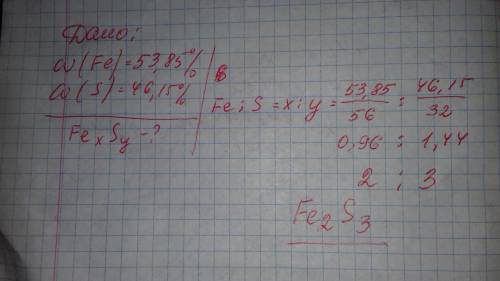 Дано:
ω(Fe)=53,85%
ω(S)=46,15%
FexSy-?
Fe:S=x:y=53,85/56:46,15/32
0,96:1,44
2:3
Fe2S3